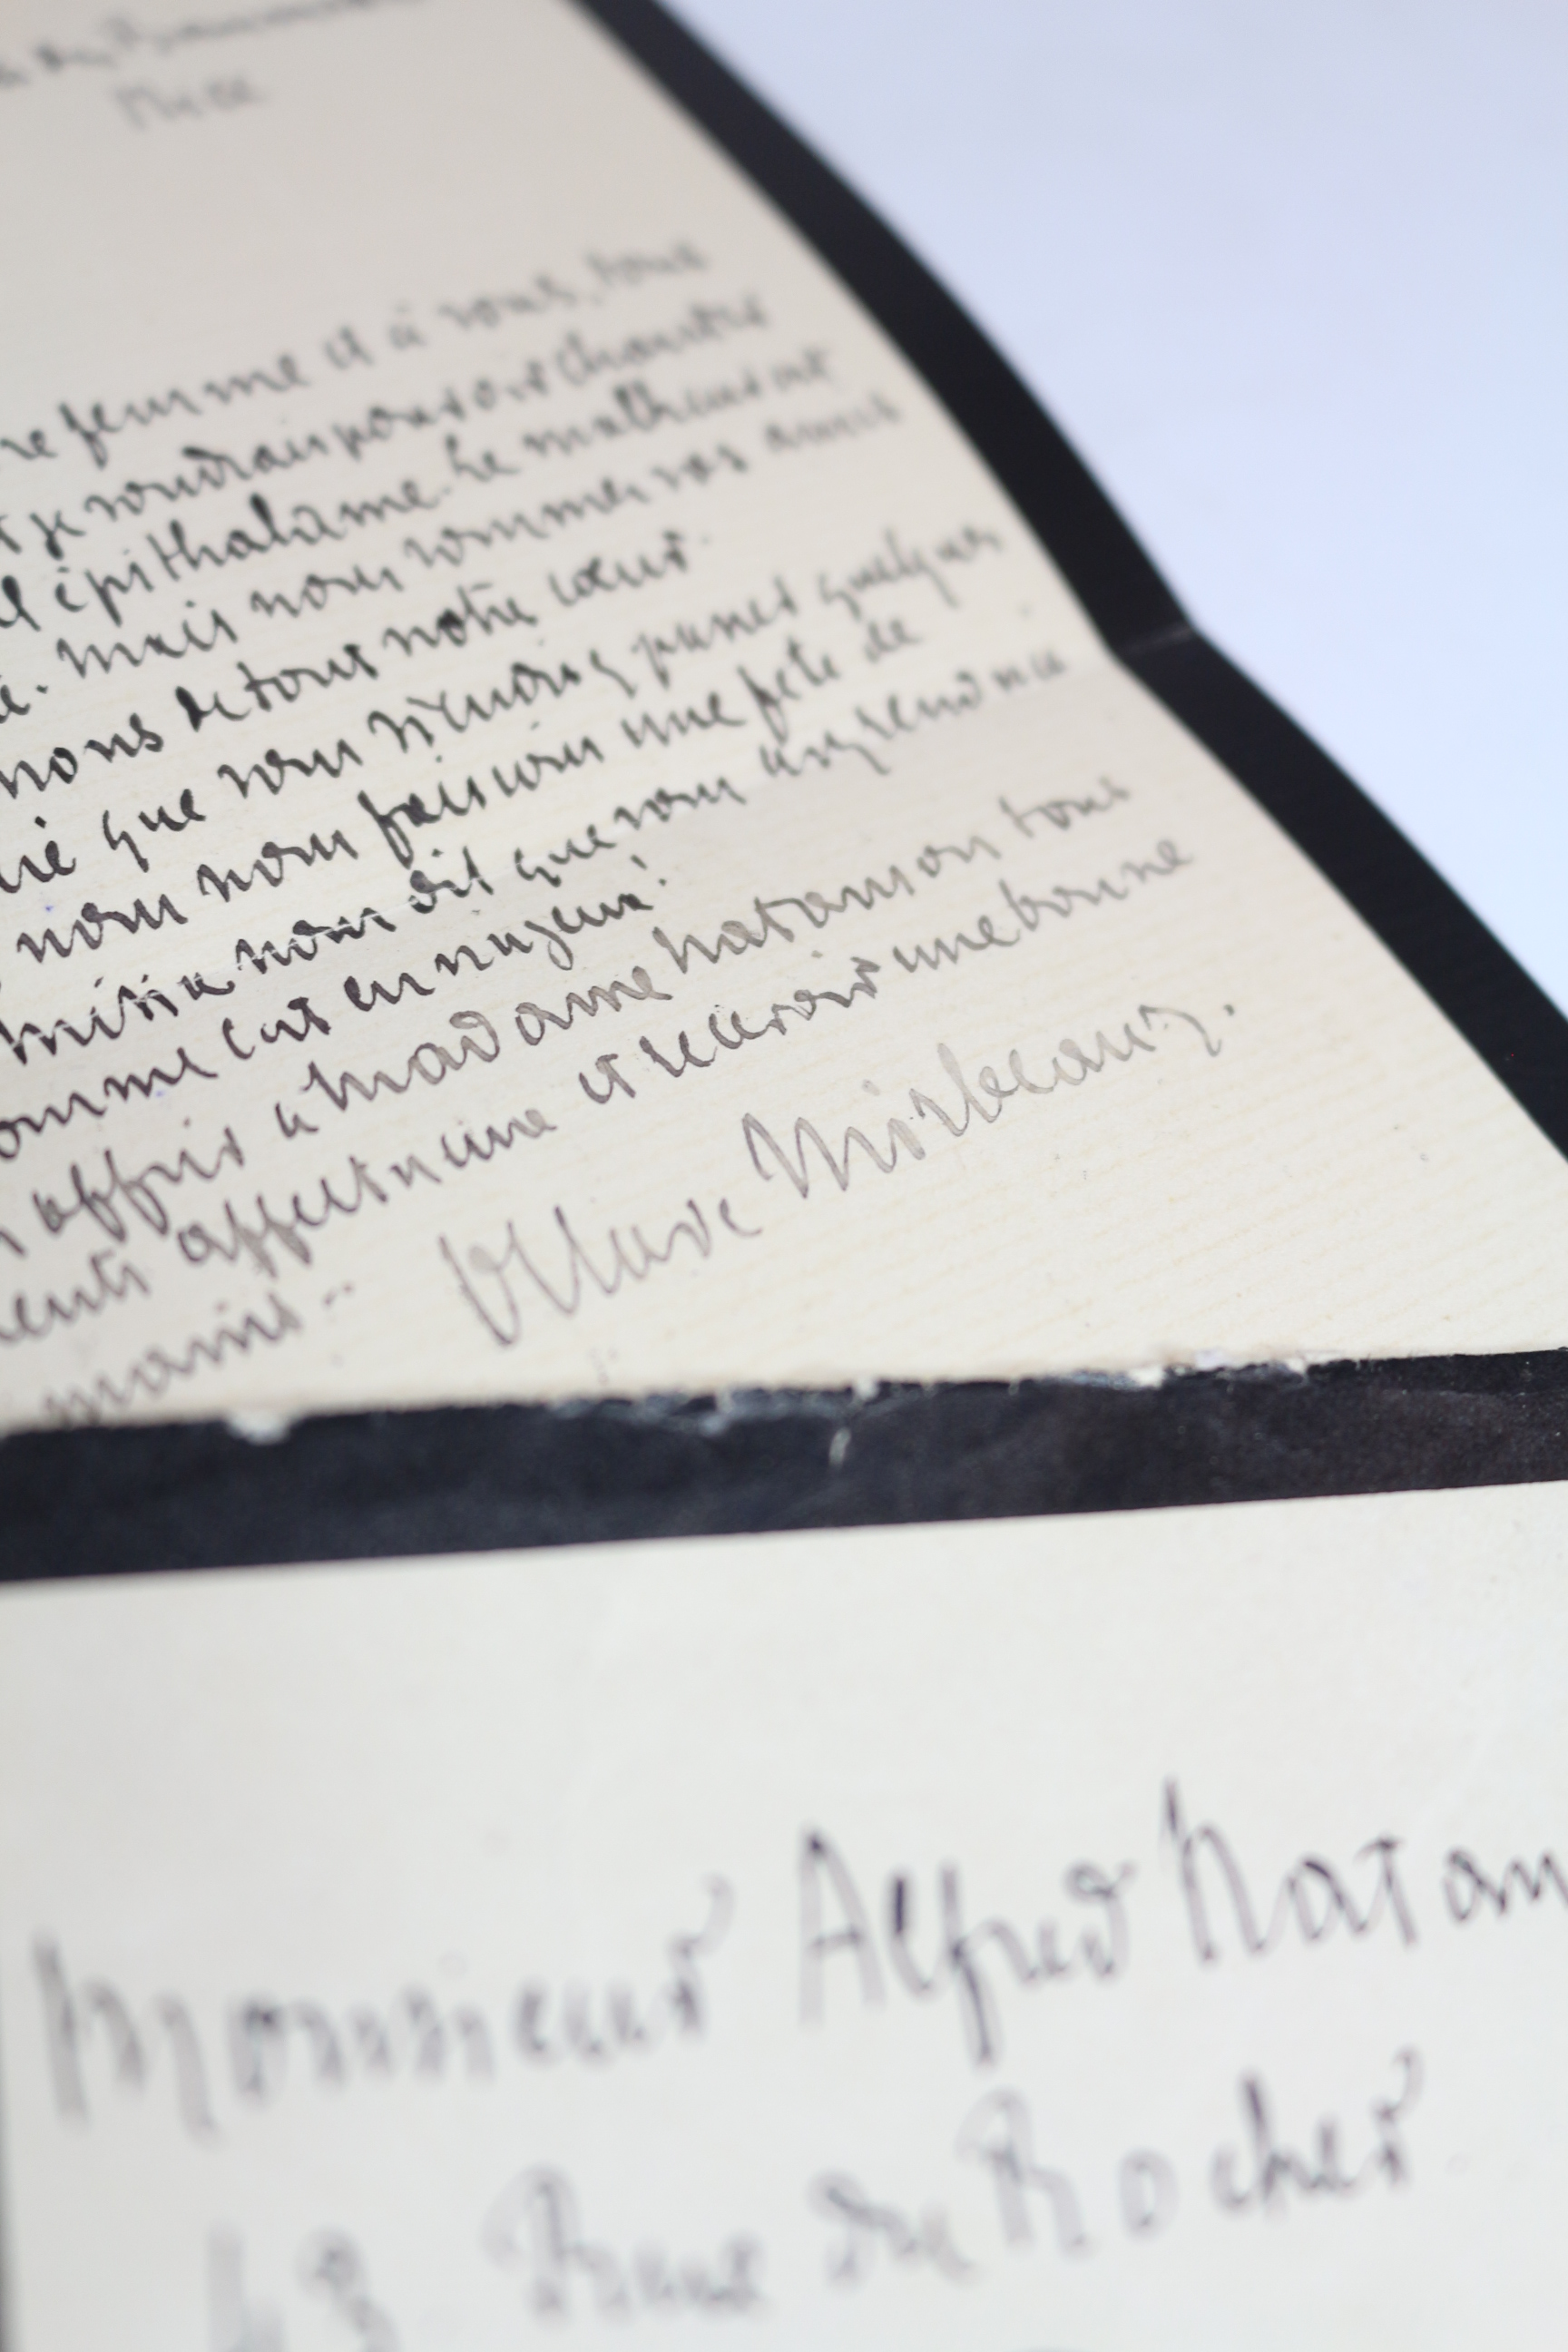 Nice
femme et à vous, tous
je voudrais pouvoir chanter
épithalame. Le malheur est
. mais nous sommes vos amis
de tout notre cœur.
que vous viendrez passer quelques
nous nous faisons une fête de
Misia nous dit que vous
comme c'est ennuyeux!
offrir à Madame Natanson tous
affectueux et recevoir une bonne
mains..
Octave Mirbeau.
Monsieur Alfred Natan
48 Rue du Rocher